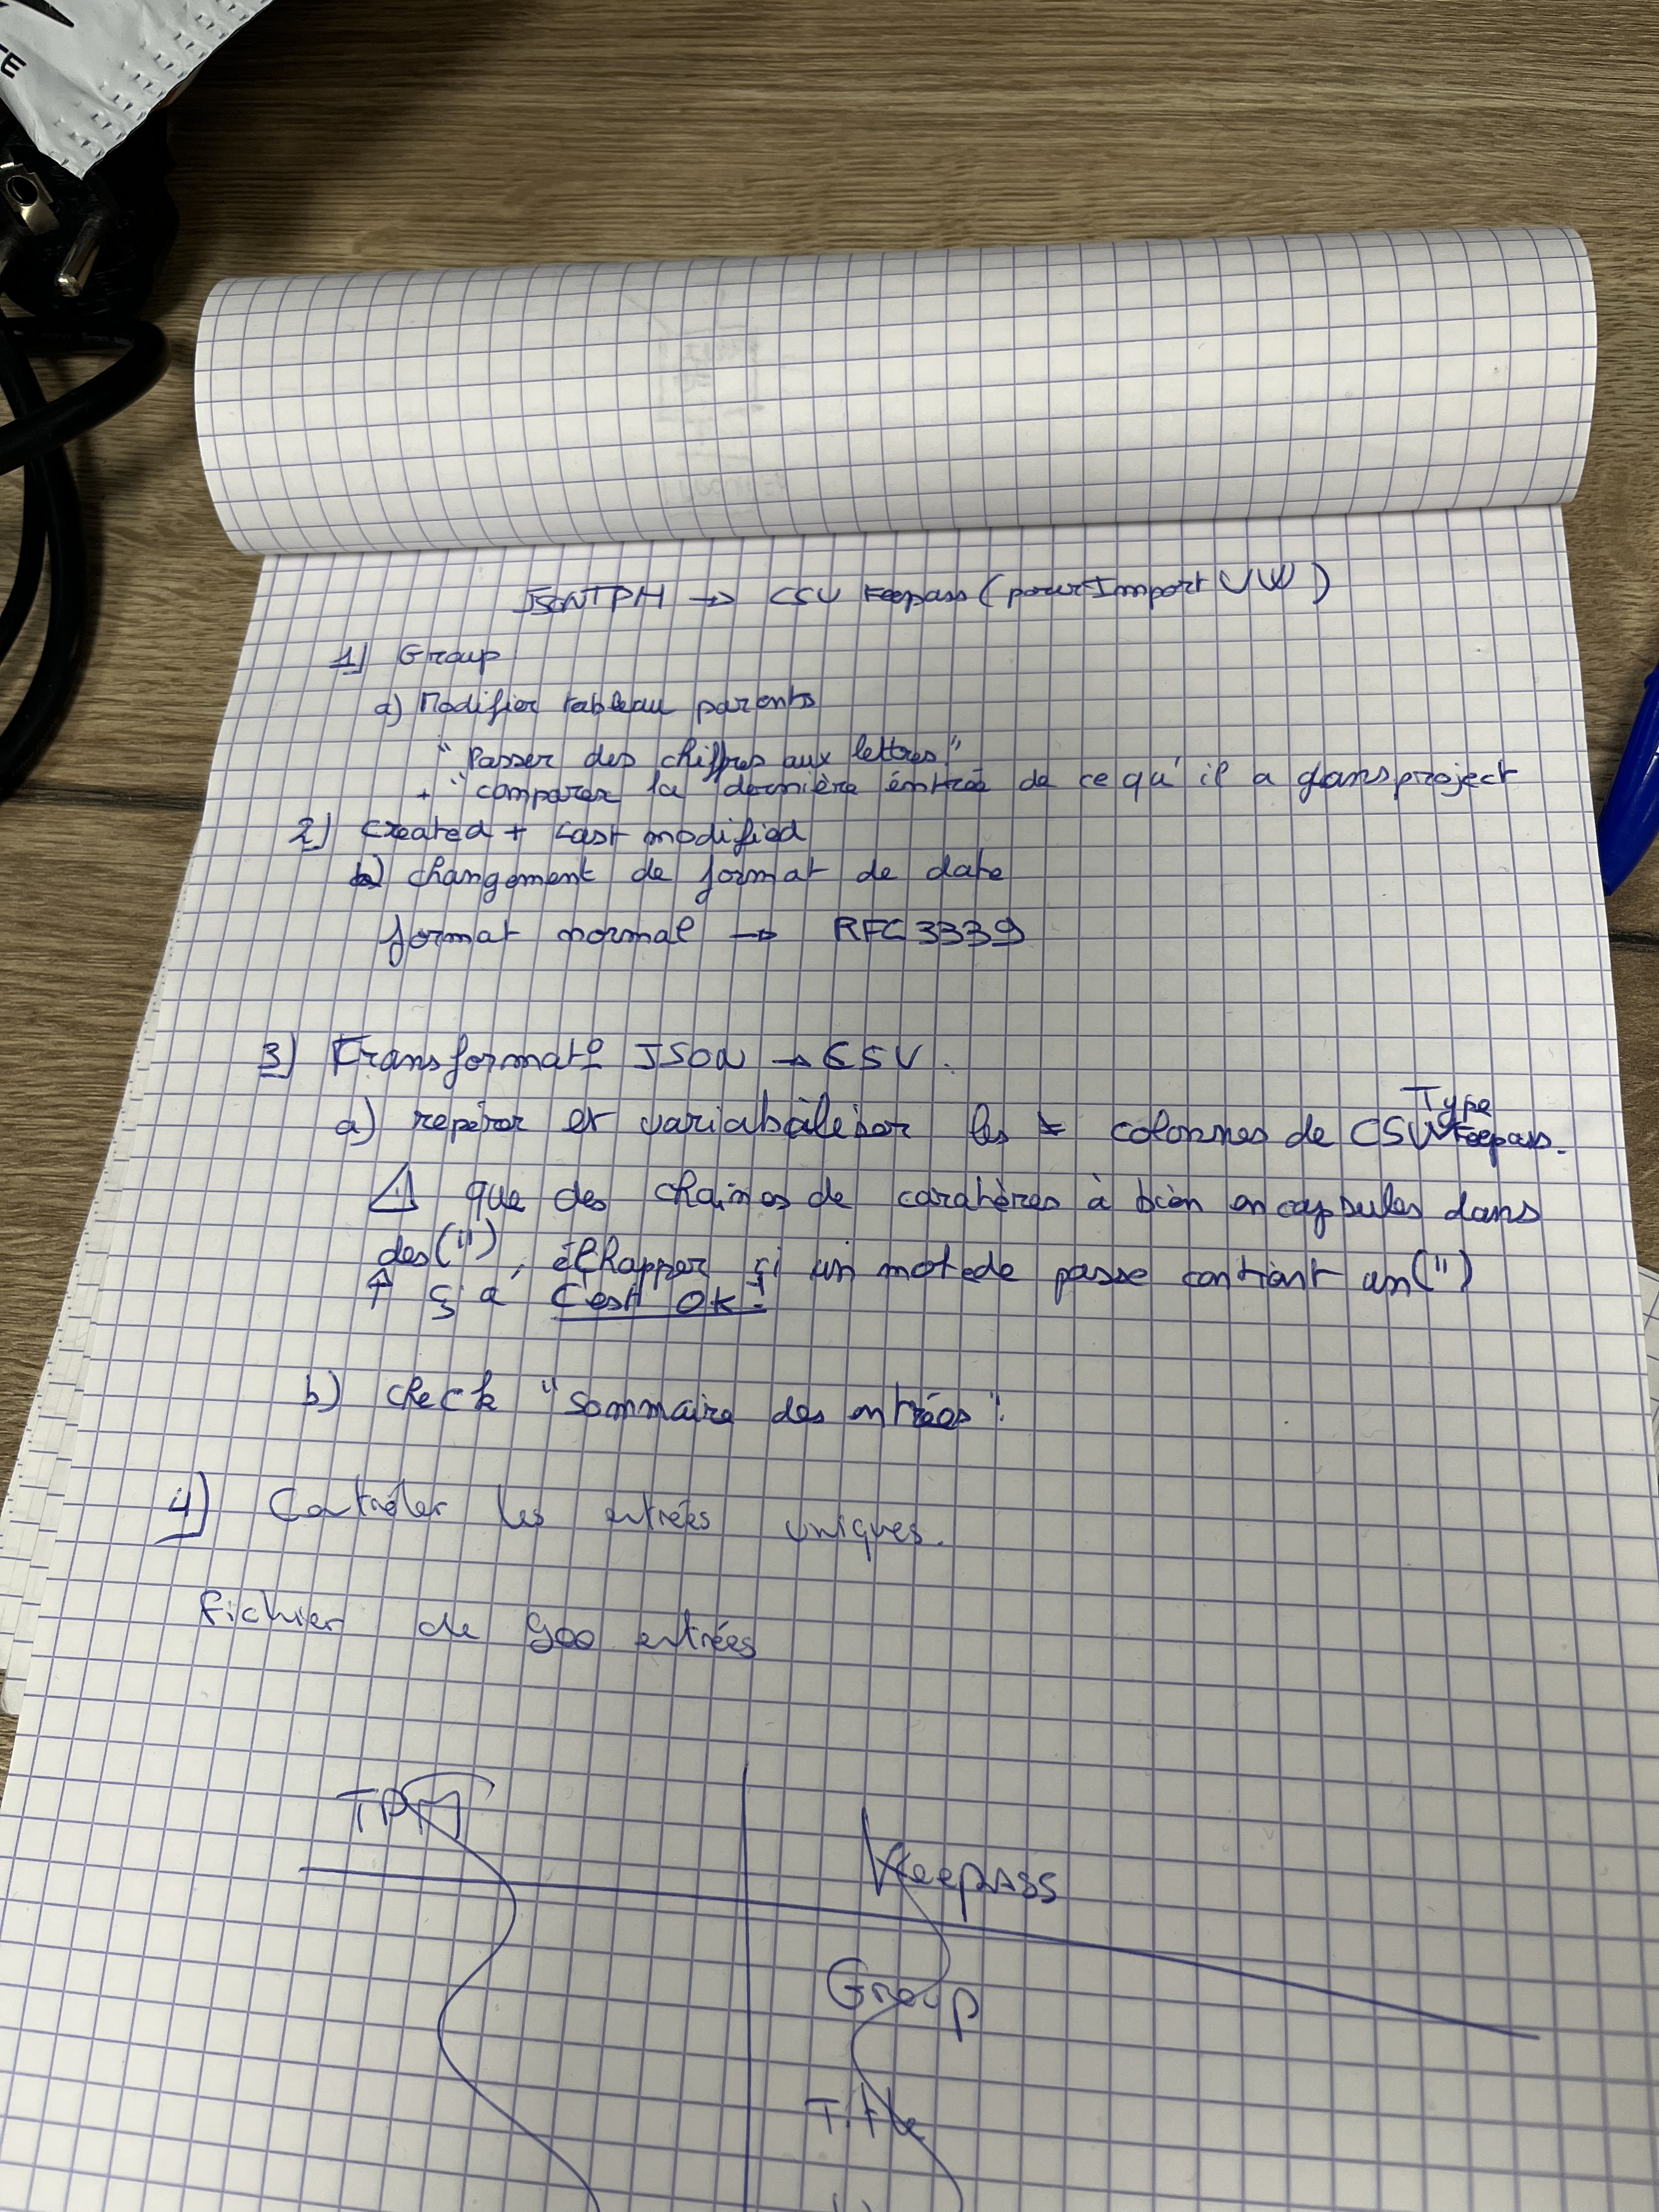 TE
JSON TPM → CSV Keepass (pour Import VW)
1) Group
a) Modifier tableau parents
"Passer des chiffres aux lettres"
+ "comparer la dernière éntrée de ce qu'il a dans project
2) Created + Last modified
b) changement de format de date
format normal → RFC 3339
3) Transformat° JSON → CSV.
Type
a) repérer et variabaliser les ≠ colonnes de CSV Keepass.
⚠ que des chaines de carahères à bien encapsules dans
des ("), échapper si un mot de passe contient un (")
↑ ç a C'est OK!
b) check "sommaire des entrées".
4) Contrôler les entrées uniques.
Fichier de 900 entrées
TPM
Keepass
Group
Title